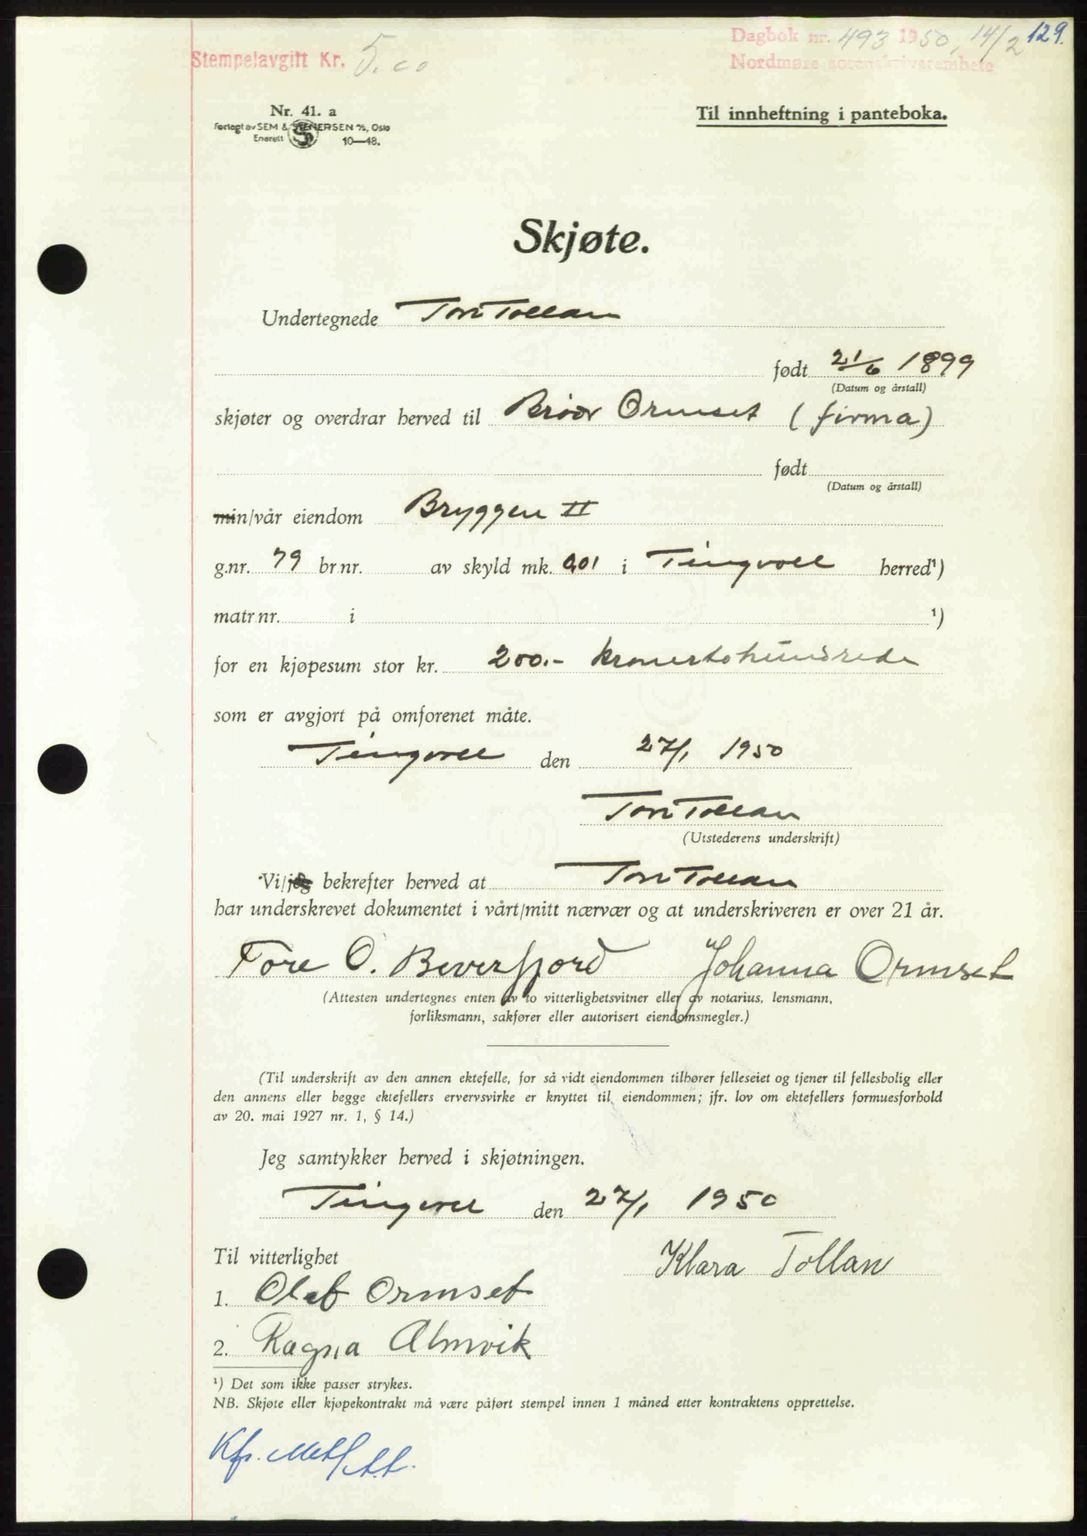 Stempelavgift Kr. 5.00
Dagbok nr. 493 1950, 14/2 129.
Nordmøre sorenskriverembete
Nr. 41. a
Forlagt av SEM & STENERSEN A/S, Oslo
Enerett 10—48.
Til innheftning i panteboka.
Skjøte.
Undertegnede Tore Tollan
født 21/6 1899
(Datum og årstall)
skjøter og overdrar herved til Brødr Ormset (firma)
født
(Datum og årstall)
min/vår eiendom Bryggen II
g.nr. 79 br nr. av skyld mk. 0,01 i Tingvoll herred¹)
matr nr. i ¹)
for en kjøpesum stor kr. 200.- kronertohundrede
som er avgjort på omforenet måte.
Tingvoll den 27/1 1950
Tore Tollan
(Utstederens underskrift)
Vi/jeg bekrefter herved at Tore Tollan
har underskrevet dokumentet i vårt/mitt nærvær og at underskriveren er over 21 år.
Tore O. Beverfjord Johanna Ormset
(Attesten undertegnes enten av to vitterlighetsvitner eller av notarius, lensmann,
forliksmann, sakfører eller autorisert eiendomsmegler.)
(Til underskrift av den annen ektefelle, for så vidt eiendommen tilhører felleseiet og tjener til fellesbolig eller
den annens eller begge ektefellers ervervsvirke er knyttet til eiendommen; jfr. lov om ektefellers formuesforhold
av 20. mai 1927 nr. 1, § 14.)
Jeg samtykker herved i skjøtningen.
Tingvoll den 27/1 1950
Til vitterlighet Klara Tollan
1. Olaf Ormset
2. Ragna Almvik
¹) Det som ikke passer strykes.
NB. Skjøte eller kjøpekontrakt må være påført stempel innen 1 måned etter kontraktens opprettelse.
Kfr.